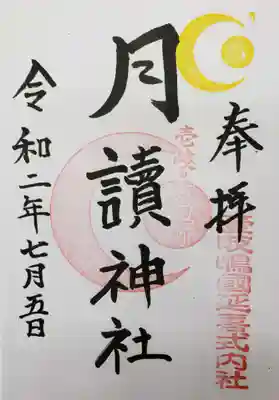 奉拝
壱岐嶋國延喜式内社
月讀神社
令和二年七月五日